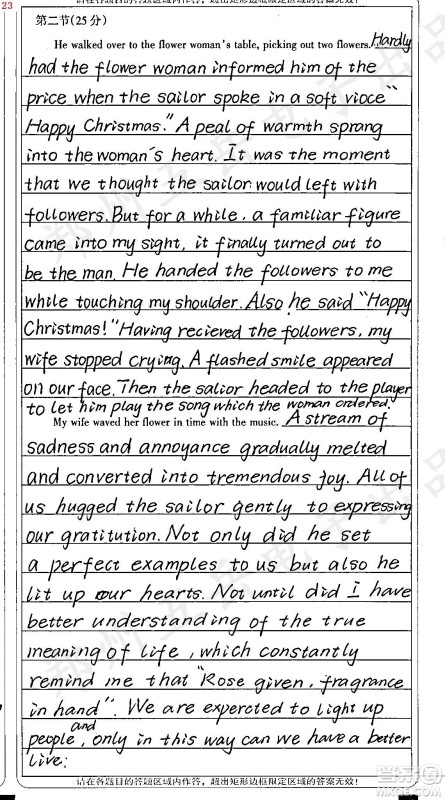 23
请在各题目的答题区域内作答，超出矩形边框限定区域的答案无效！
第二节(25分)
He walked over to the flower woman's table, picking out two flowers. Hardly
had the flower woman informed him of the
price when the sailor spoke in a soft vioce "
Happy Christmas." A peal of warmth sprang
into the woman's heart. It was the moment
that we thought the sailor would left with
followers. But for a while, a familiar figure
came into my sight, it finally turned out to
be the man. He handed the followers to me
while touching my shoulder. Also, he said "Happy
Christmas!" Having recieved the followers, my
wife stopped crying. A flashed smile appeared
on our face. Then the salior headed to the player
to let him play the song which the woman ordered.
My wife waved her flower in time with the music. A stream of
sadness and annoyance gradually melted
and converted into tremendous joy. All of
us hugged the sailor gently to expressing
our gratitution. Not only did he set
a perfect examples to us but also he
lit up our hearts. Not until did I have
better understanding of the true
meaning of life, which constantly
remind me that "Rose given, fragrance
in hand". We are expercted to light up
people, and only in this way can we have a better
live.
请在各题目的答题区域内作答，超出矩形边框限定区域的答案无效！